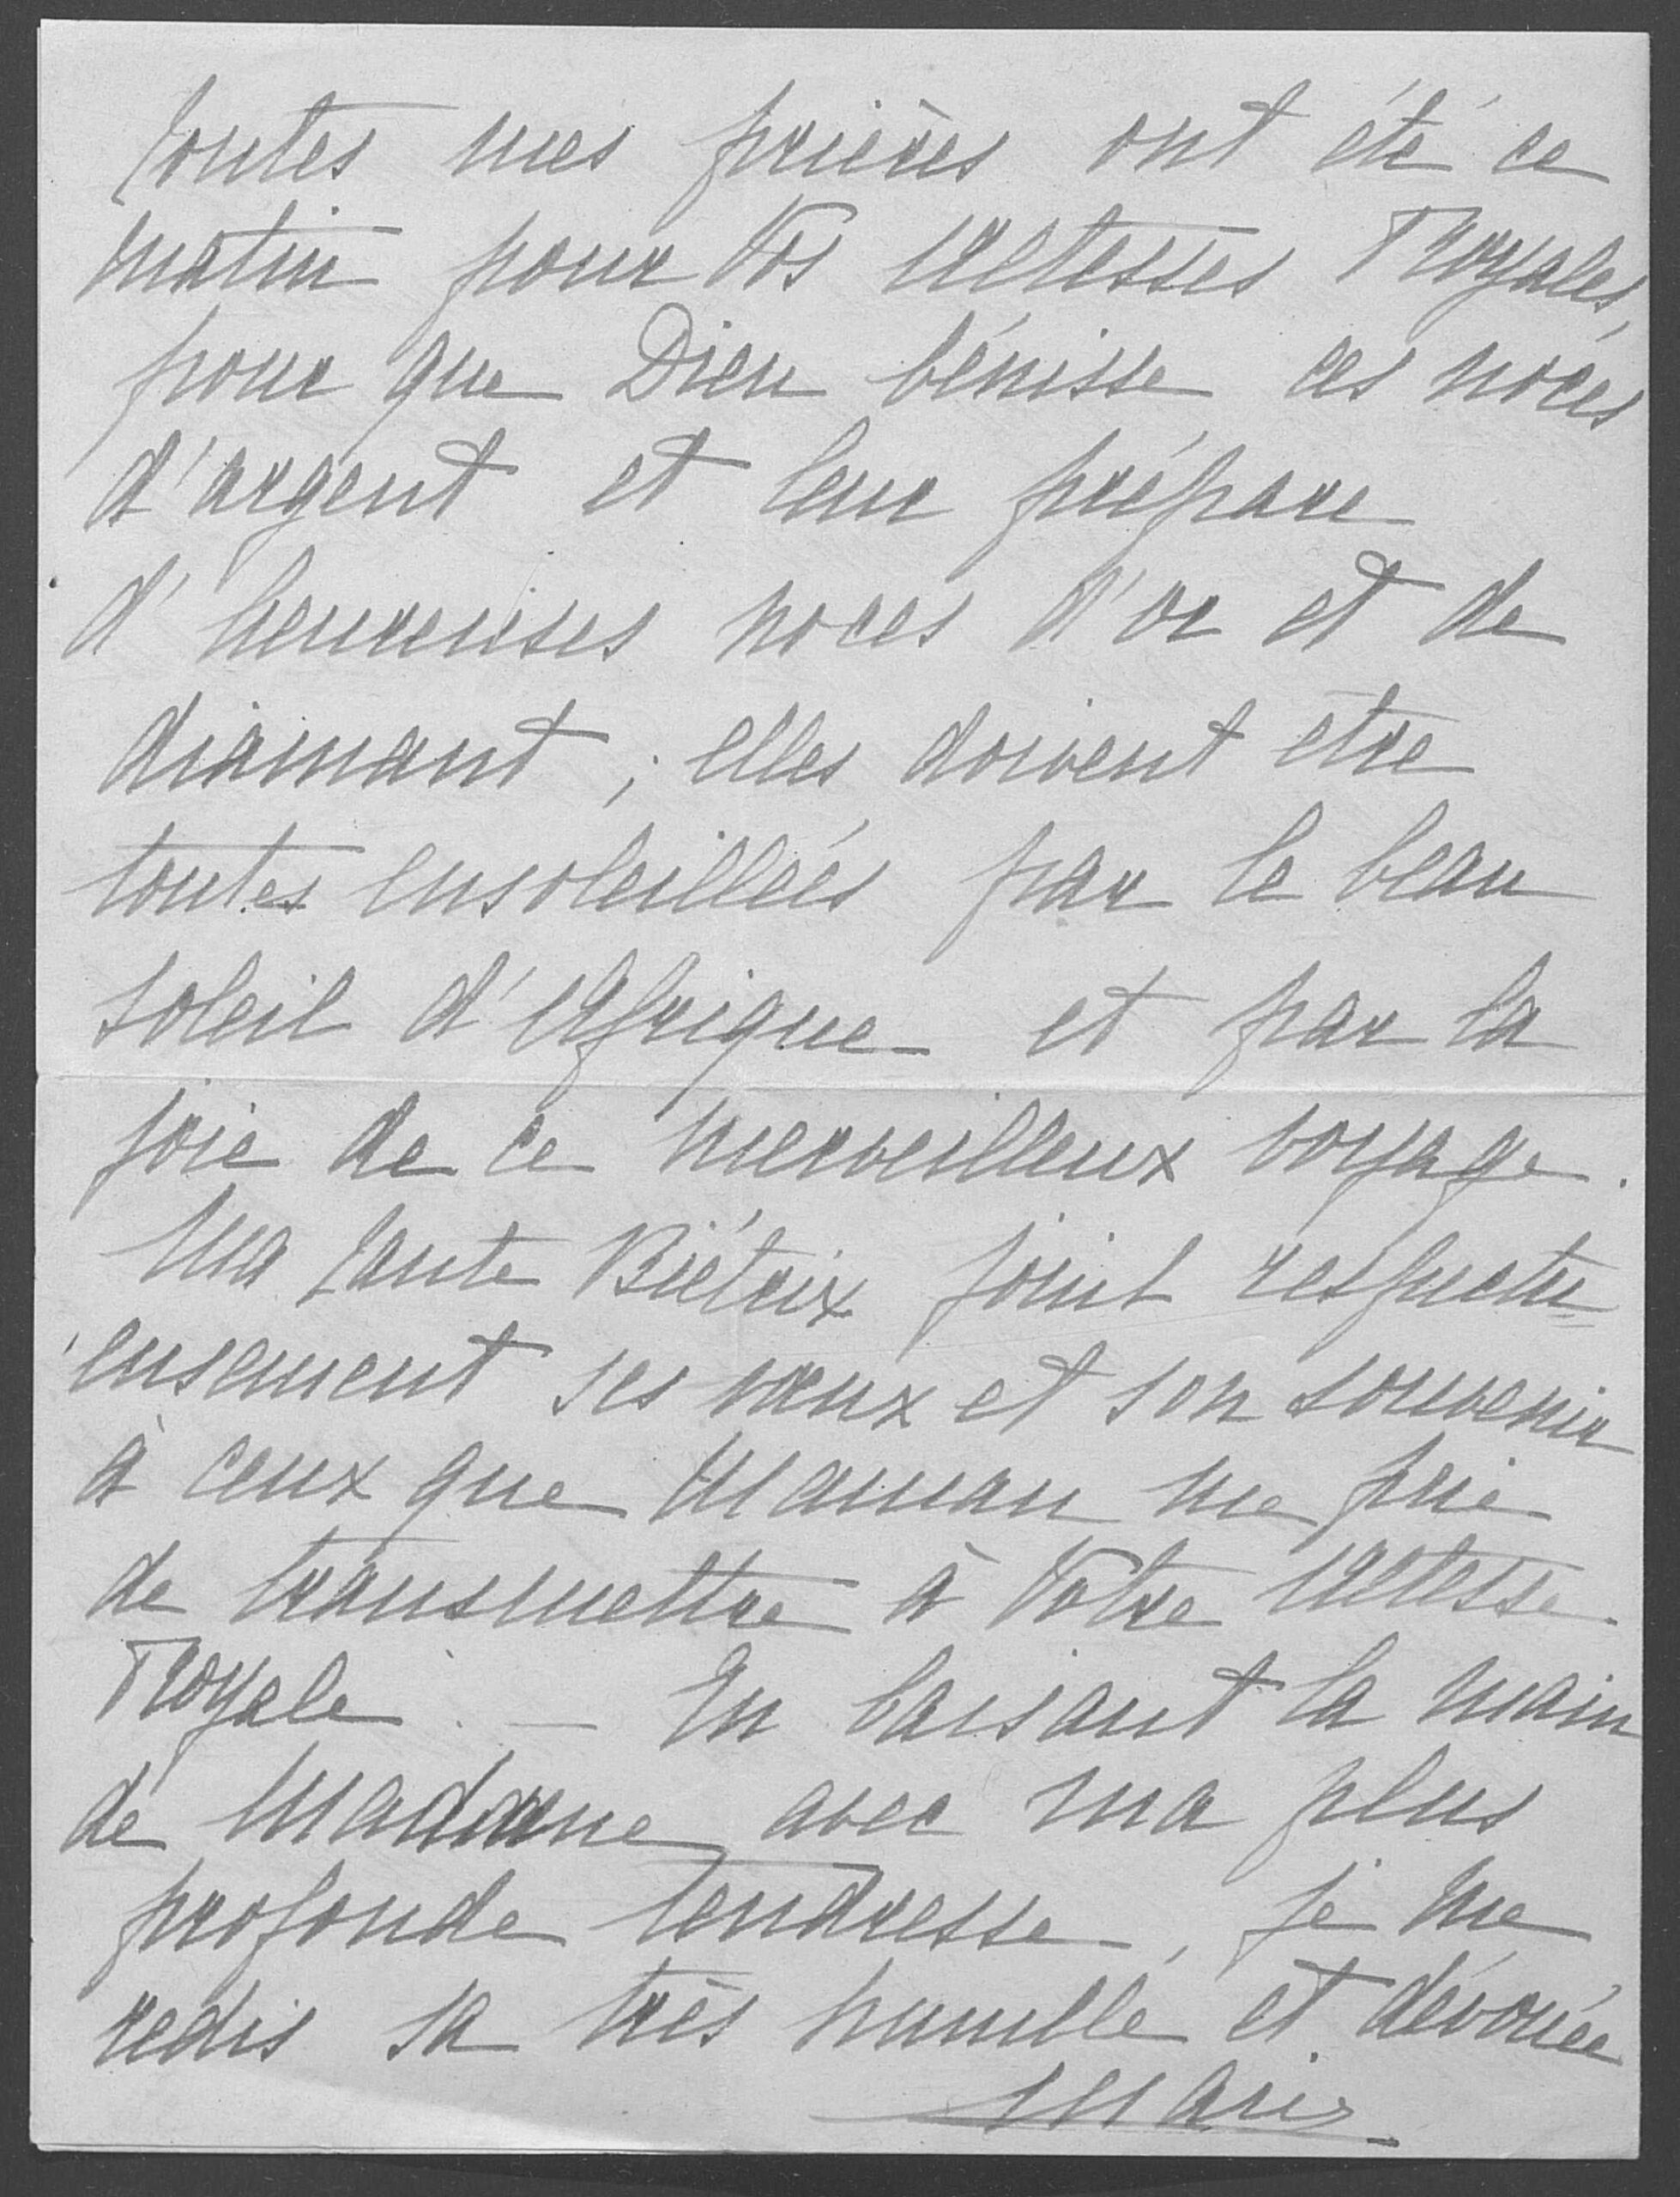 toutes mes prières ont été ce
matin pour Vos Altesses Royales,
pour que Dieu bénisse ces noces
d'argent et leur prépare
d'heureuses noces d'or et de
diamant ; elles doivent être
toutes ensoleillées par le beau
soleil d'Afrique et par la
joie de ce merveilleux voyage.
Ma tante Biétrix joint respectu=
eusement ses vœux et son souvenir
à ceux que Maman me prie
de transmettre à Votre Altesse
Royale. — En baisant la main
de Madame avec ma plus
profonde tendresse, je me
redis sa très humble et dévouée
Marie